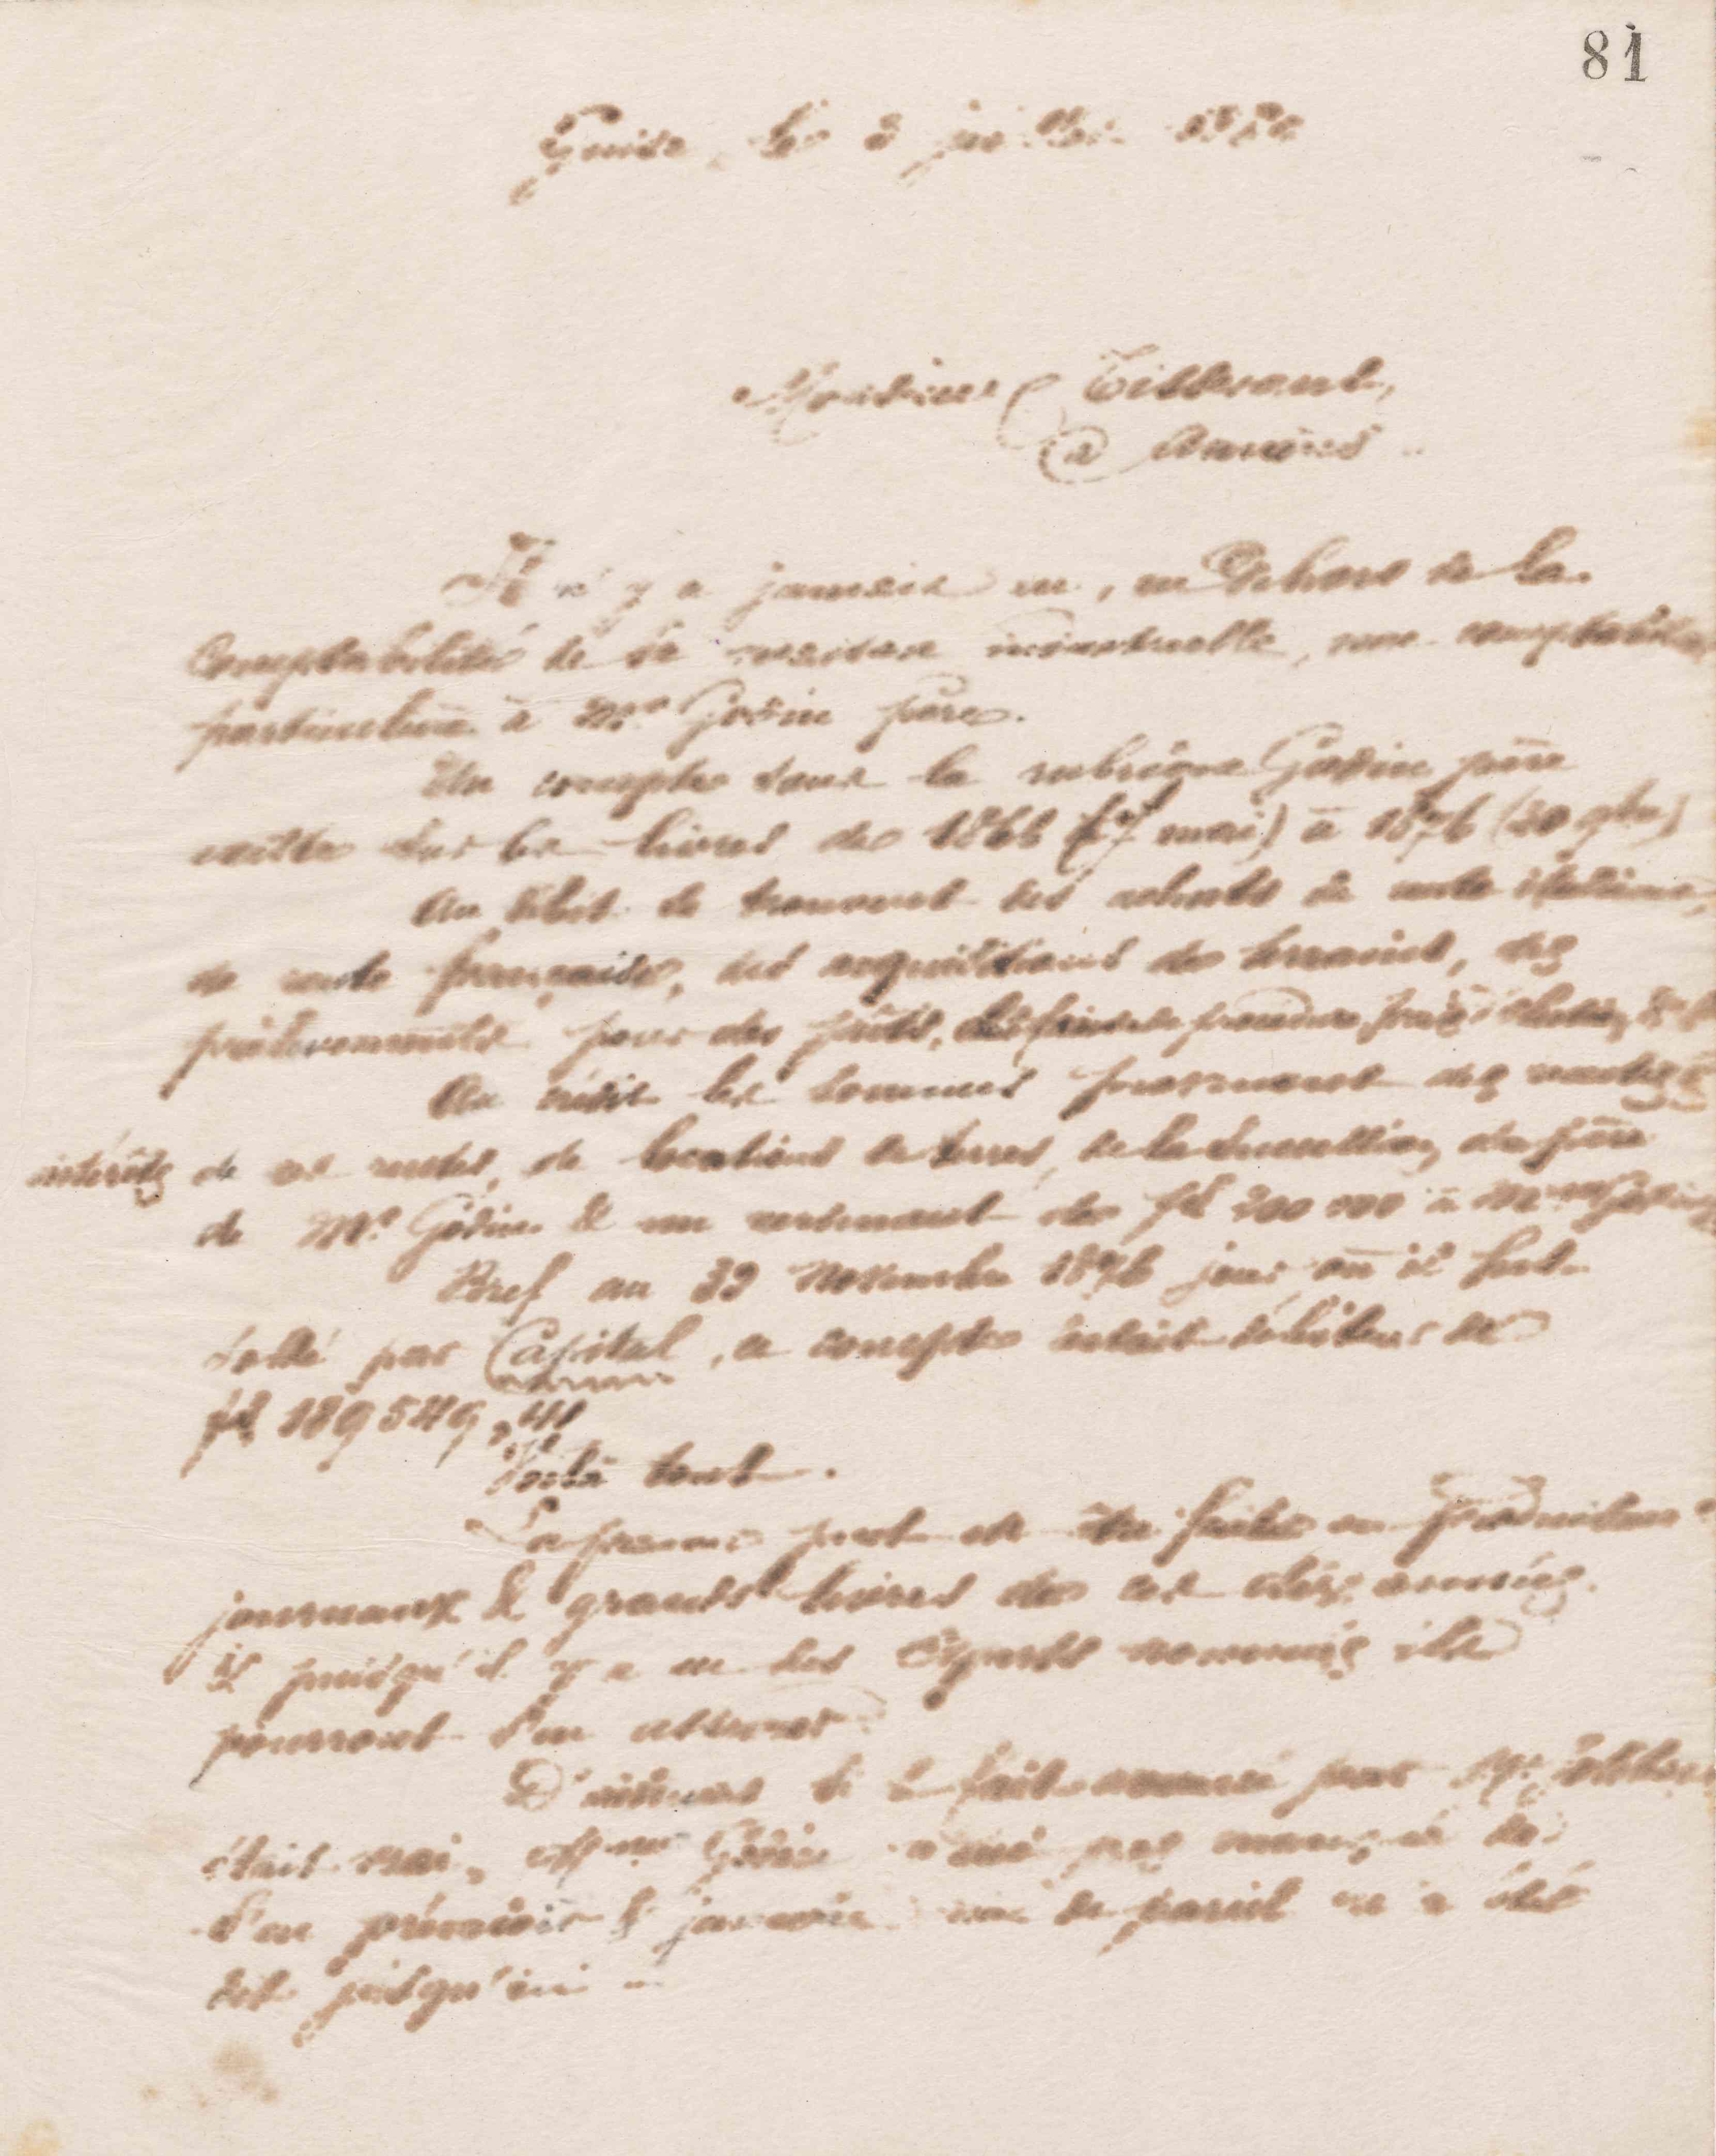 81
Guise, le 3 juillet
Monsieur Tisserant,
à
Il n'y a jamais eu, en dehors de la
Comptabilité de la maison industrielle, une comptabilité
particulière à Mr Godin père.
Un compte sous la rubrique Godin père
existe sur les livres de 1866 mai) à 1876 (30 9bre)
Au débit se trouvent des achats de rente italienne,
de rente française, des acquisitions de terrains, des
prélèvements pour des prêts, des
Au crédit les sommes provenant des ventes &
intérêts de ces rentes, de locations de terres, de la succession du père
de Mr Godin & un versement de fs 200 000 à Mme Godin
Bref au 30 Novembre 1876 jour où il fut
soldé par Capital, ce compte était débiteur de
fs 189 549,
Voilà tout.
La preuve peut en être faite en produisant
journaux & grands livres de ces dix années.
Et puisqu'il y a eu des Experts nommés ils
pourront s'en assurer.
D'ailleurs si le fait avancé par Mr
était vrai, Mme Godin n'eut pas manqué de
s'en prévaloir & jamais rien de pareil n'a été
dit jusqu'ici